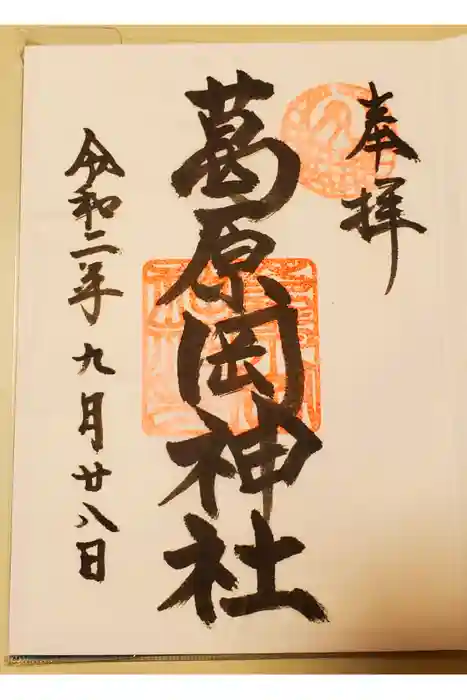 奉拝
葛原岡神社
令和二年九月廿八日